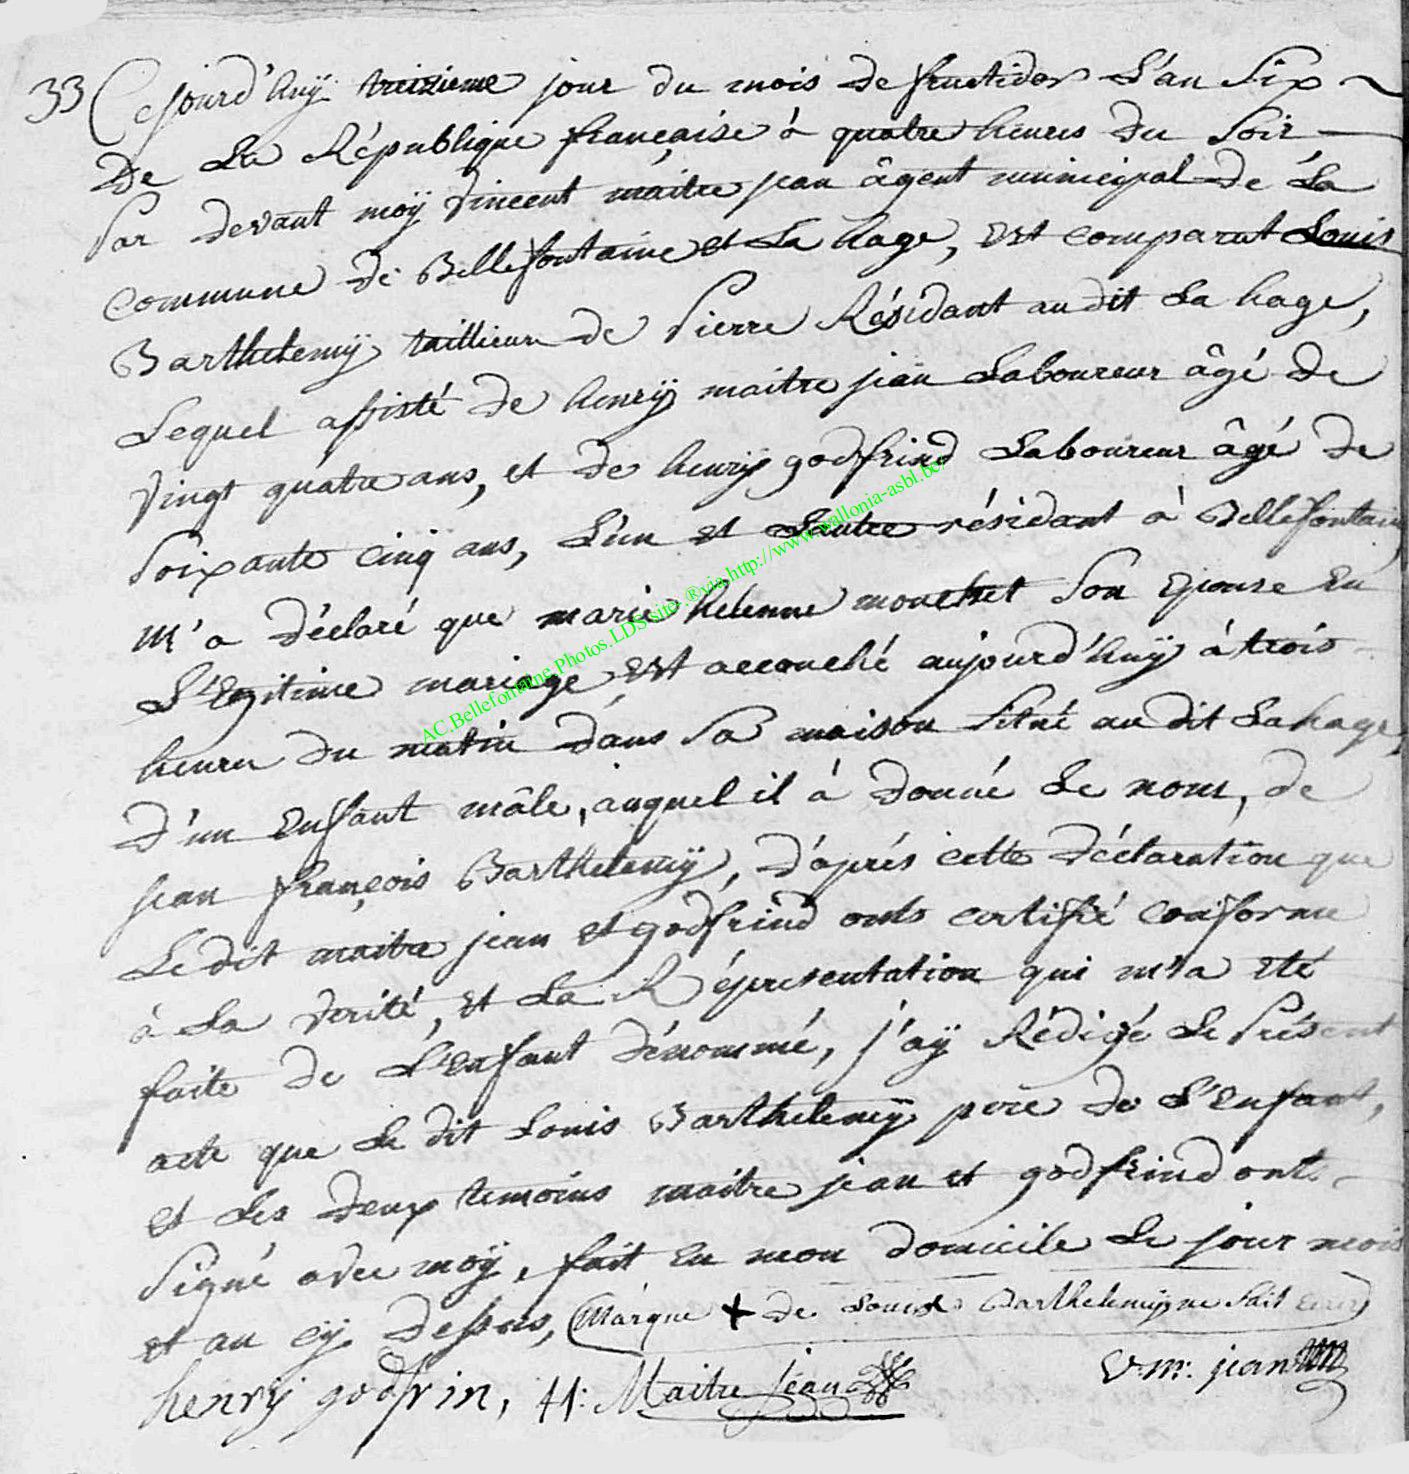 33 Cejourd'huÿ treizieme jour du mois de fructidor L'an Six
De La République française à quatre heures du Soir
Par devant moÿ Vincent maitre jean âgent municipal de La
commune de Bellefontaine et La hage, est comparut Louis
Barthelemÿ taillieur de Pierre Résidant audit La hage,
Lequel assisté de henrÿ maitre jean Laboureur âgé de
Vingt quatre ans, et de henrÿ godfrind Laboureur âgé de
Soixante cinq ans, L'un et L'autre résidant à Bellefontaine
m'a déclaré que marie helenne mouchet Son Epouse en
L'Egitime mariage est accouché aujourd'huÿ à trois
heures du matin dans Sa maison Situé audit Lahage,
D'un Enfant mâle, auquel il à donné Le nom, de
jean françois Barthelemÿ, d'après cette déclaration que
Le dit maitre jean et godfrind onts certifié conforme
à La Verité, et La Réprésentation qui m'a eté
faite de L'Enfant dénommé, j'aÿ Rédigé Le Présent
acte que Le dit Louis Barthelemÿ pere de L'Enfant,
et Les deux temoins maitre jean et godfrind ont
Signé avec moÿ, fait en mon domicile Le jour mois
et an cÿ dessus, (Marque + de Louis Barthelemÿ ne Sait Ecrir)
henrij godfrin, H: Maitre jean V: m: jean
AC.Bellefontaine.Photos.LDS.site.®via.http://www.wallonia-asbl.be/